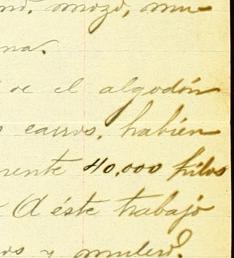 mozo, mu-
na.
el algodón
carros, habién
mente 40,000 kilos
A éste trabajo
y mulero.